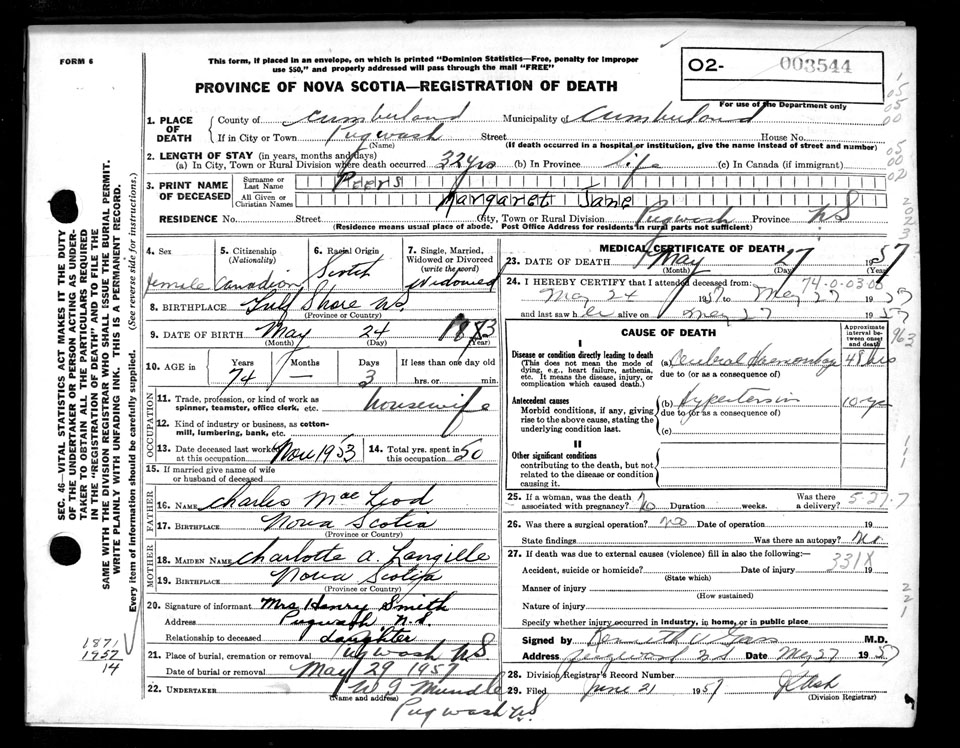 FORM 6
This form, if placed in an envelope, on which is printed "Dominion Statistics—Free, penalty for improper
use $50," and properly addressed will pass through the mail "FREE"
O2- 003544
For use of the Department only
PROVINCE OF NOVA SCOTIA—REGISTRATION OF DEATH
1. PLACE OF DEATH County of Cumberland Municipality of Cumberland
If in City or Town Pugwash Street House No.
(Name) (If death occurred in a hospital or institution, give the name instead of street and number)
2. LENGTH OF STAY (in years, months and days)
(a) In City, Town or Rural Division where death occurred 32 yrs (b) In Province life (c) In Canada (if immigrant)
3. PRINT NAME OF DECEASED Surname or Last Name Peers
All Given or Christian Names Margaret Jane
RESIDENCE No. Street City, Town or Rural Division Pugwash Province NS
(Residence means usual place of abode. Post Office Address for residents in rural parts not sufficient)
4. Sex 5. Citizenship (Nationality) 6. Racial Origin 7. Single, Married, Widowed or Divorced (write the word)
Female Canadian Scotch Widowed
8. BIRTHPLACE Gulf Shore NS
(Province or Country)
9. DATE OF BIRTH May 24 1883
(Month) (Day) (Year)
10. AGE in Years Months Days If less than one day old
74 — 3 hrs. or min.
OCCUPATION
11. Trade, profession, or kind of work as spinner, teamster, office clerk, etc. housewife
12. Kind of industry or business, as cotton-mill, lumbering, bank, etc.
13. Date deceased last worked at this occupation Nov 1953 14. Total yrs. spent in this occupation 50
15. If married give name of wife or husband of deceased
FATHER
16. NAME Charles MacLeod
17. BIRTHPLACE Nova Scotia
(Province or Country)
MOTHER
18. MAIDEN NAME Charlotte A. Langille
19. BIRTHPLACE Nova Scotia
(Province or Country)
20. Signature of informant Mrs Henry Smith
Address Pugwash N.S.
Relationship to deceased Daughter
21. Place of burial, cremation or removal Pugwash NS
Date of burial or removal May 29 1957
22. UNDERTAKER W J Mundle
(Name and address)
Pugwash NS
MEDICAL CERTIFICATE OF DEATH
23. DATE OF DEATH May 27 1957
(Month) (Day) (Year)
74-0-03-08
24. I HEREBY CERTIFY that I attended deceased from:
May 24 1957 to May 27 1957
and last saw her alive on May 27 1957
CAUSE OF DEATH
Approximate interval between onset and death
963
I
Disease or condition directly leading to death
(This does not mean the mode of dying, e.g., heart failure, asthenia, etc. It means the disease, injury, or complication which caused death.)
(a) Cerebral Haemorrhage 48 hrs
due to (or as a consequence of)
Antecedent causes
Morbid conditions, if any, giving rise to the above cause, stating the underlying condition last.
(b) Hypertension 10 yrs
due to (or as a consequence of)
(c)
II
Other significant conditions
contributing to the death, but not related to the disease or condition causing it.
25. If a woman, was the death associated with pregnancy? No Duration weeks. Was there a delivery?
5-27-7
26. Was there a surgical operation? No Date of operation 19
State findings Was there an autopsy? No
27. If death was due to external causes (violence) fill in also the following:—
331X
Accident, suicide or homicide? Date of injury 19
(State which)
Manner of injury
(How sustained)
Nature of injury
Specify whether injury occurred in industry, in home, or in public place
Signed by Kenneth V Gass M.D.
Address Pugwash NS Date May 27 1957
28. Division Registrar's Record Number
29. Filed June 21 1957
(Division Registrar)
SEC. 46—VITAL STATISTICS ACT MAKES IT THE DUTY
OF THE UNDERTAKER OR PERSON ACTING AS UNDER-
TAKER TO OBTAIN ALL THE PARTICULARS REQUIRED
IN THE "REGISTRATION OF DEATH" AND TO FILE THE
SAME WITH THE DIVISION REGISTRAR WHO SHALL ISSUE THE BURIAL PERMIT.
WRITE PLAINLY WITH UNFADING INK. THIS IS A PERMANENT RECORD.
Every item of information should be carefully supplied. (See reverse side for instructions.)
1871
1957
14